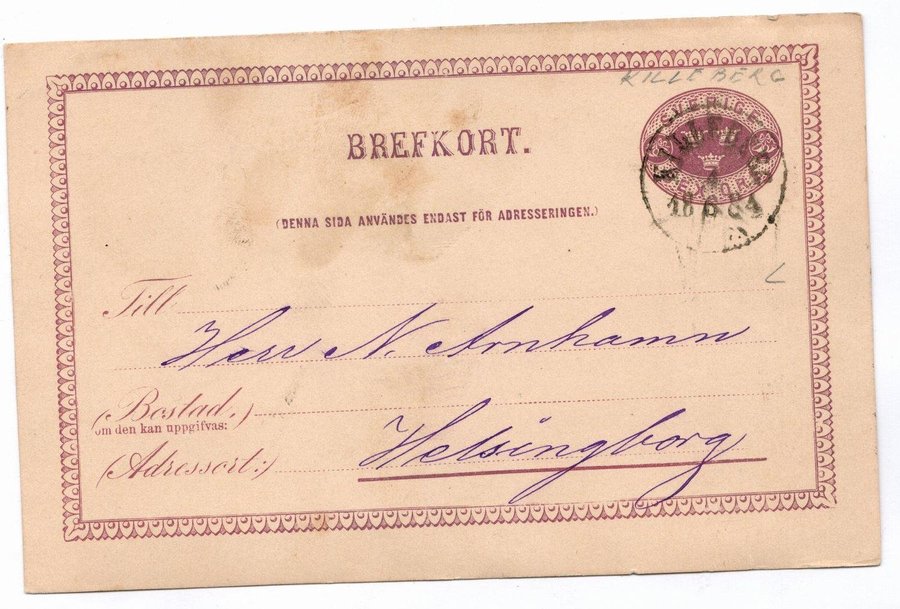 KILLEBERG
SVERIGE
KILLEBERG
BREFKORT.
(DENNA SIDA ANVÄNDES ENDAST FÖR ADRESSERINGEN.)
Till
Herr N. Arnhamn
(Bostad,)
om den kan uppgifvas:
Helsingborg
(Adressort:)